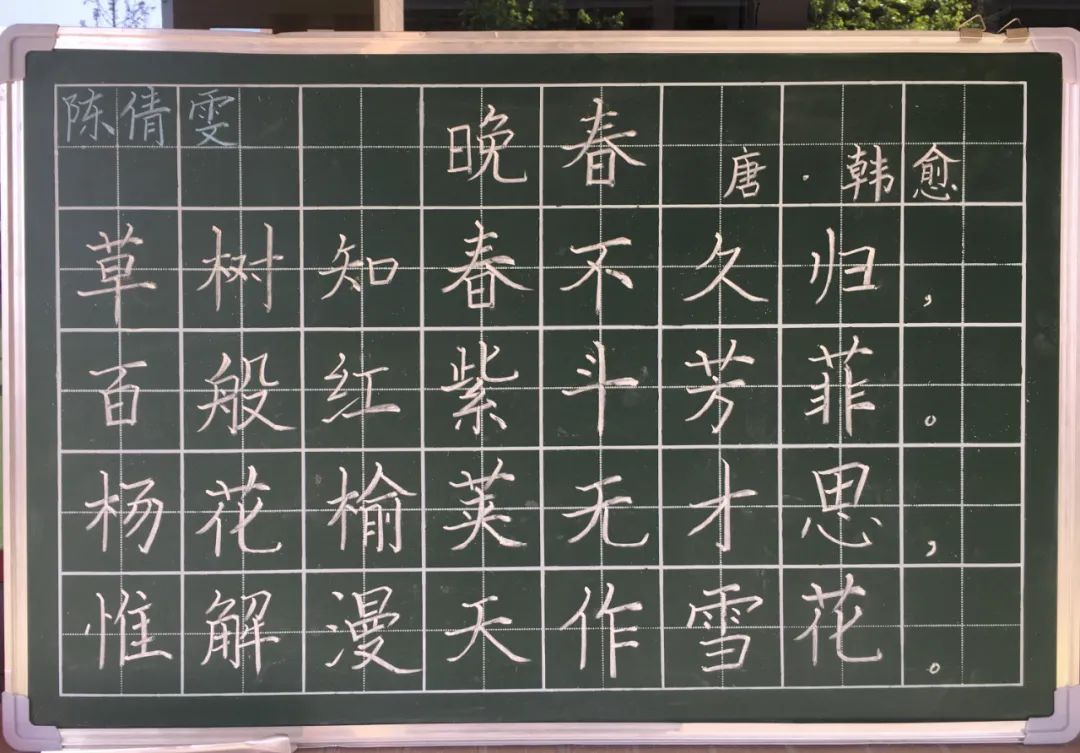 陈倩雯
晚春
唐·韩愈
草树知春不久归，
百般红紫斗芳菲。
杨花榆荚无才思，
惟解漫天作雪花。